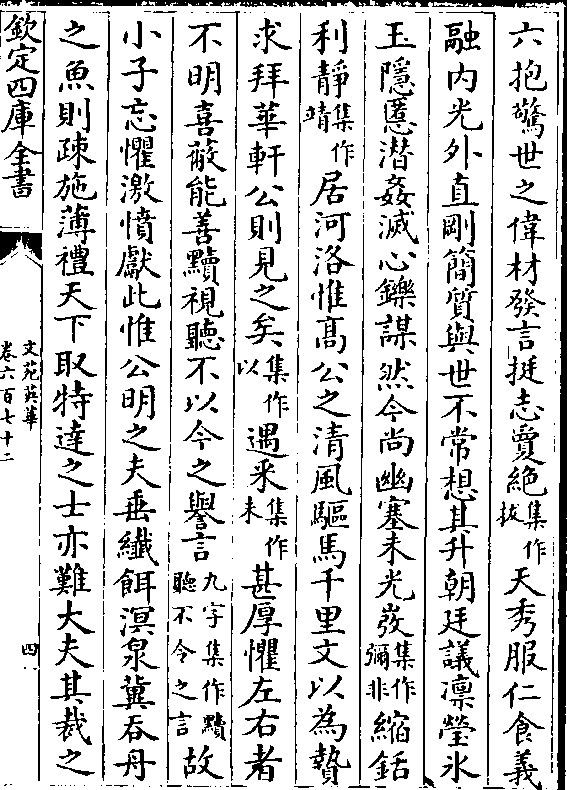 六抱驚世之偉材發言挺志敻絶集作拔天秀服仁食義
融内光外直剛簡質與世不常想其升朝廷議凛瑩氷
玉隱慝潜姦滅心鑠謀然今尚幽塞未光發集作彌非縮銛
利靜集作靖居河洛惟髙公之清風驅馬千里文以為贄
求拜華軒公則見之矣集作以遇采集作未甚厚懼左右者
不明喜蔽能善黷視聽不以今之譽言九字集作黷聽不令之言故
小子忘懼激憤獻此惟公明之夫垂纎餌溟泉冀吞舟
之魚則疎施薄禮天下取特達之士亦難大夫其裁之
欽定四庫全書
文苑英華
卷六百七十二
四